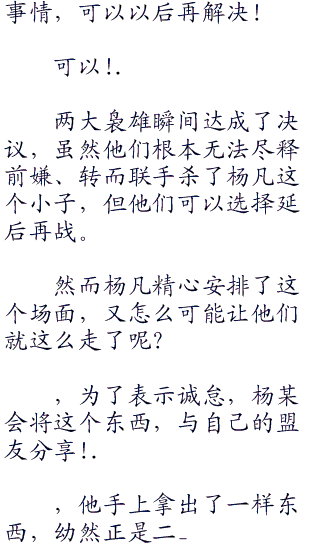 事情，可以以后再解决！
可以！.
两大枭雄瞬间达成了决
议，虽然他们根本无法尽释
前嫌、转而联手杀了杨凡这
个小子，但他们可以选择延
后再战。
然而杨凡精心安排了这
个场面，又怎么可能让他们
就这么走了呢？
，为了表示诚怠，杨某
会将这个东西，与自己的盟
友分享！.
，他手上拿出了一样东
西，幼然正是二_